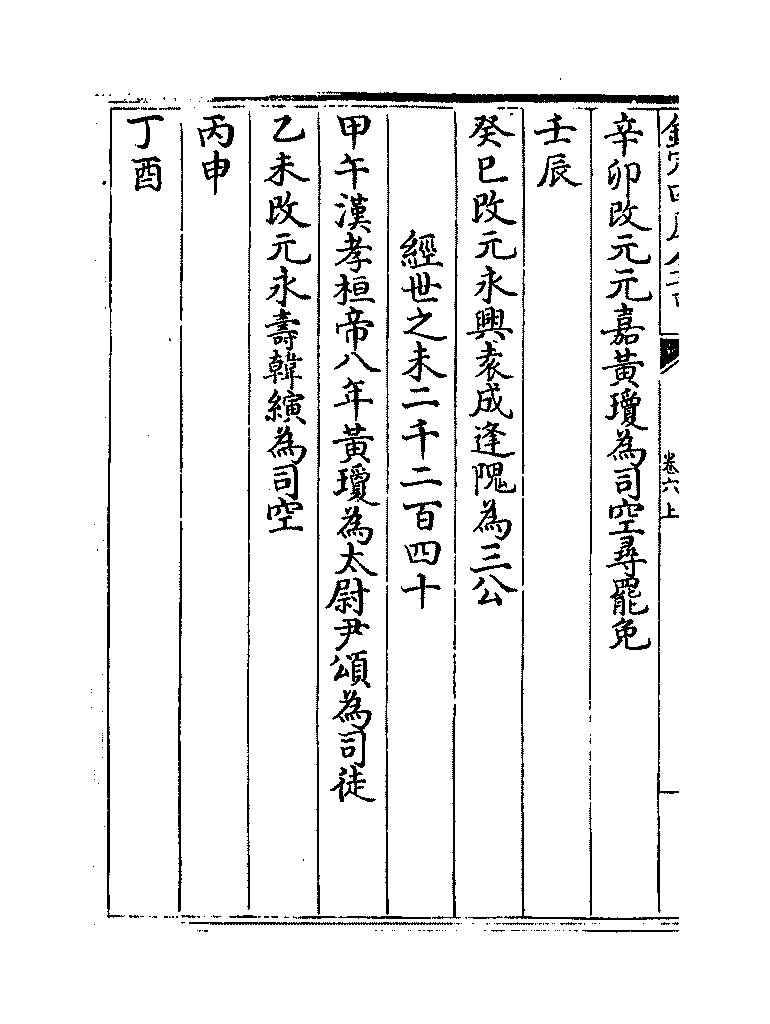 辛卯改元元嘉黃瓊為司空尋罷免
壬辰
癸巳改元永興袁成逢隗為三公
經世之未二千二百四十
甲午漢孝桓帝八年黃瓊為太尉尹頌為司徒
乙未改元永壽韓縯為司空
丙申
丁酉
卷六上